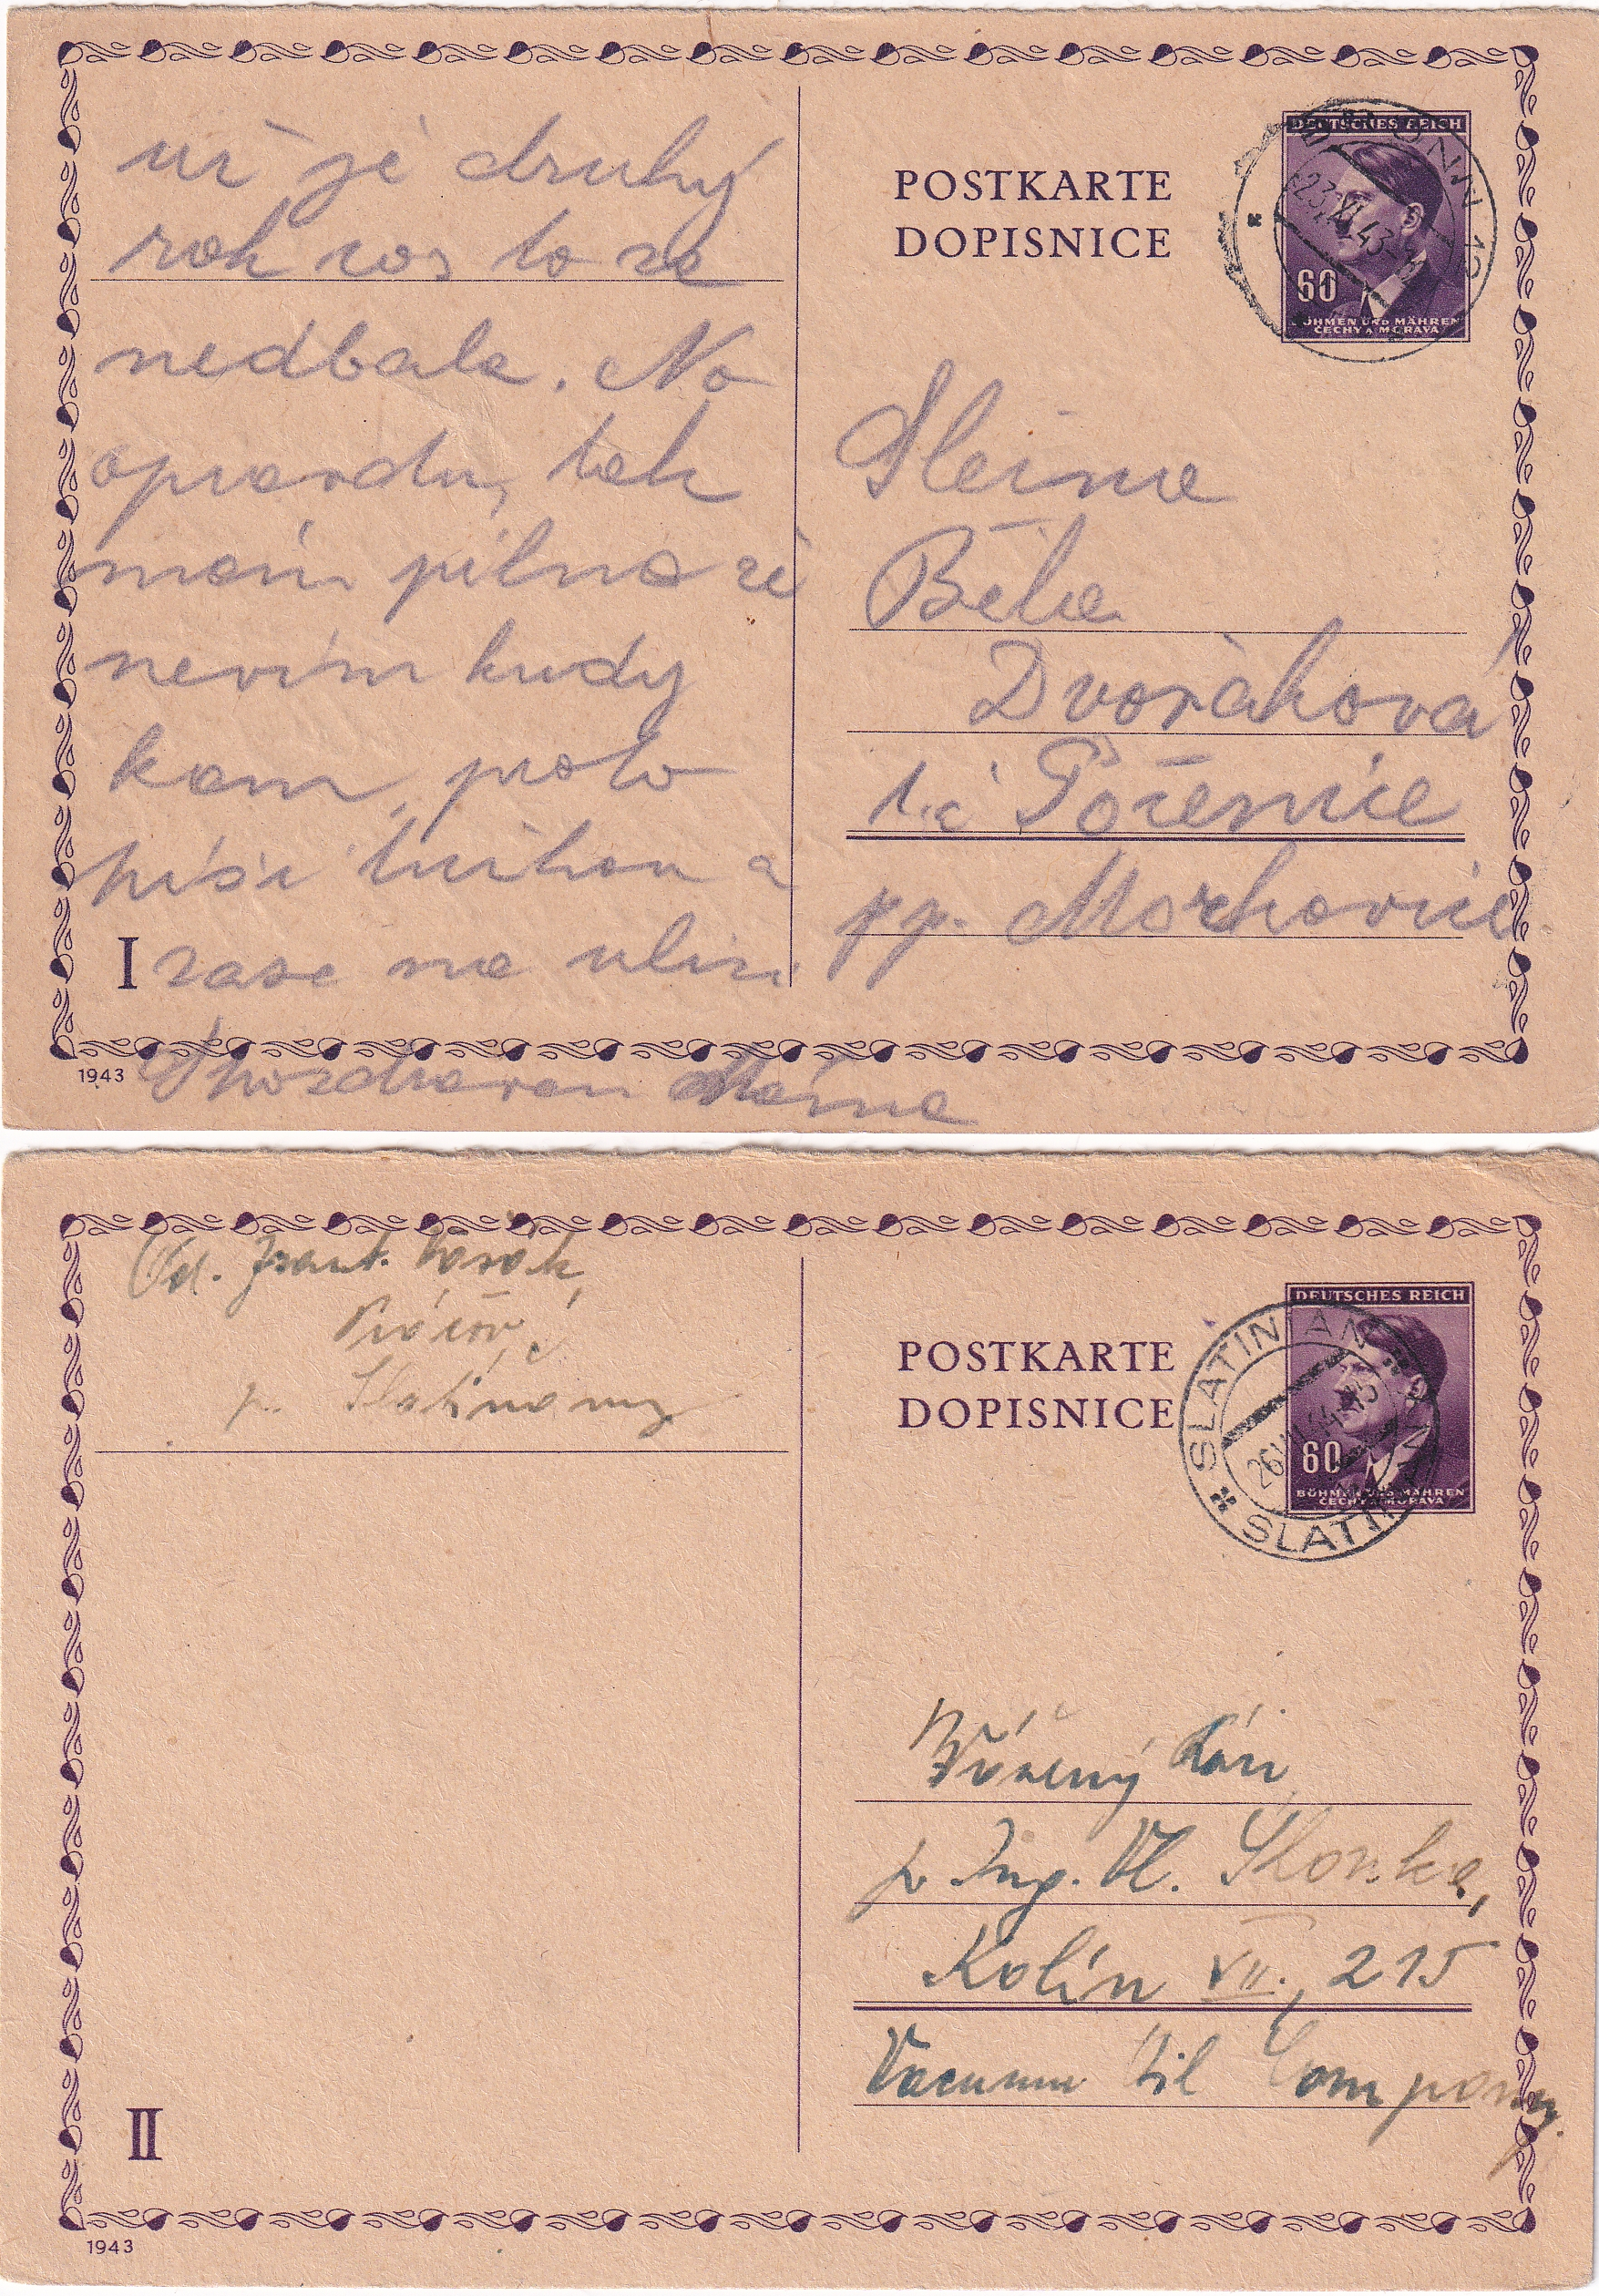 už je druhý
rok cos to se
nedbala. No
opravdu, tak
mám pilno že
nevím kudy
kam, proto
píši tužkou a
I zase na ulici.
S pozdravem Máňa
1943
POSTKARTE
DOPISNICE
DEUTSCHES REICH
60
BÖHMEN UND MÄHREN
ČECHY A MORAVA
BRÜNN
23.XI.43
Slečna
Běla
Dvořáková
Počenice
pp. Morkovice
Od. Frant.
p. Slatiňany
II
1943
POSTKARTE
DOPISNICE
DEUTSCHES REICH
60
BÖHMEN UND MÄHREN
ČECHY A MORAVA
SLATINAN
SLATIŇANY
Vážený Pán
p Ing. Vl.
Kolín VII., 215
Vacuum Oil Company.